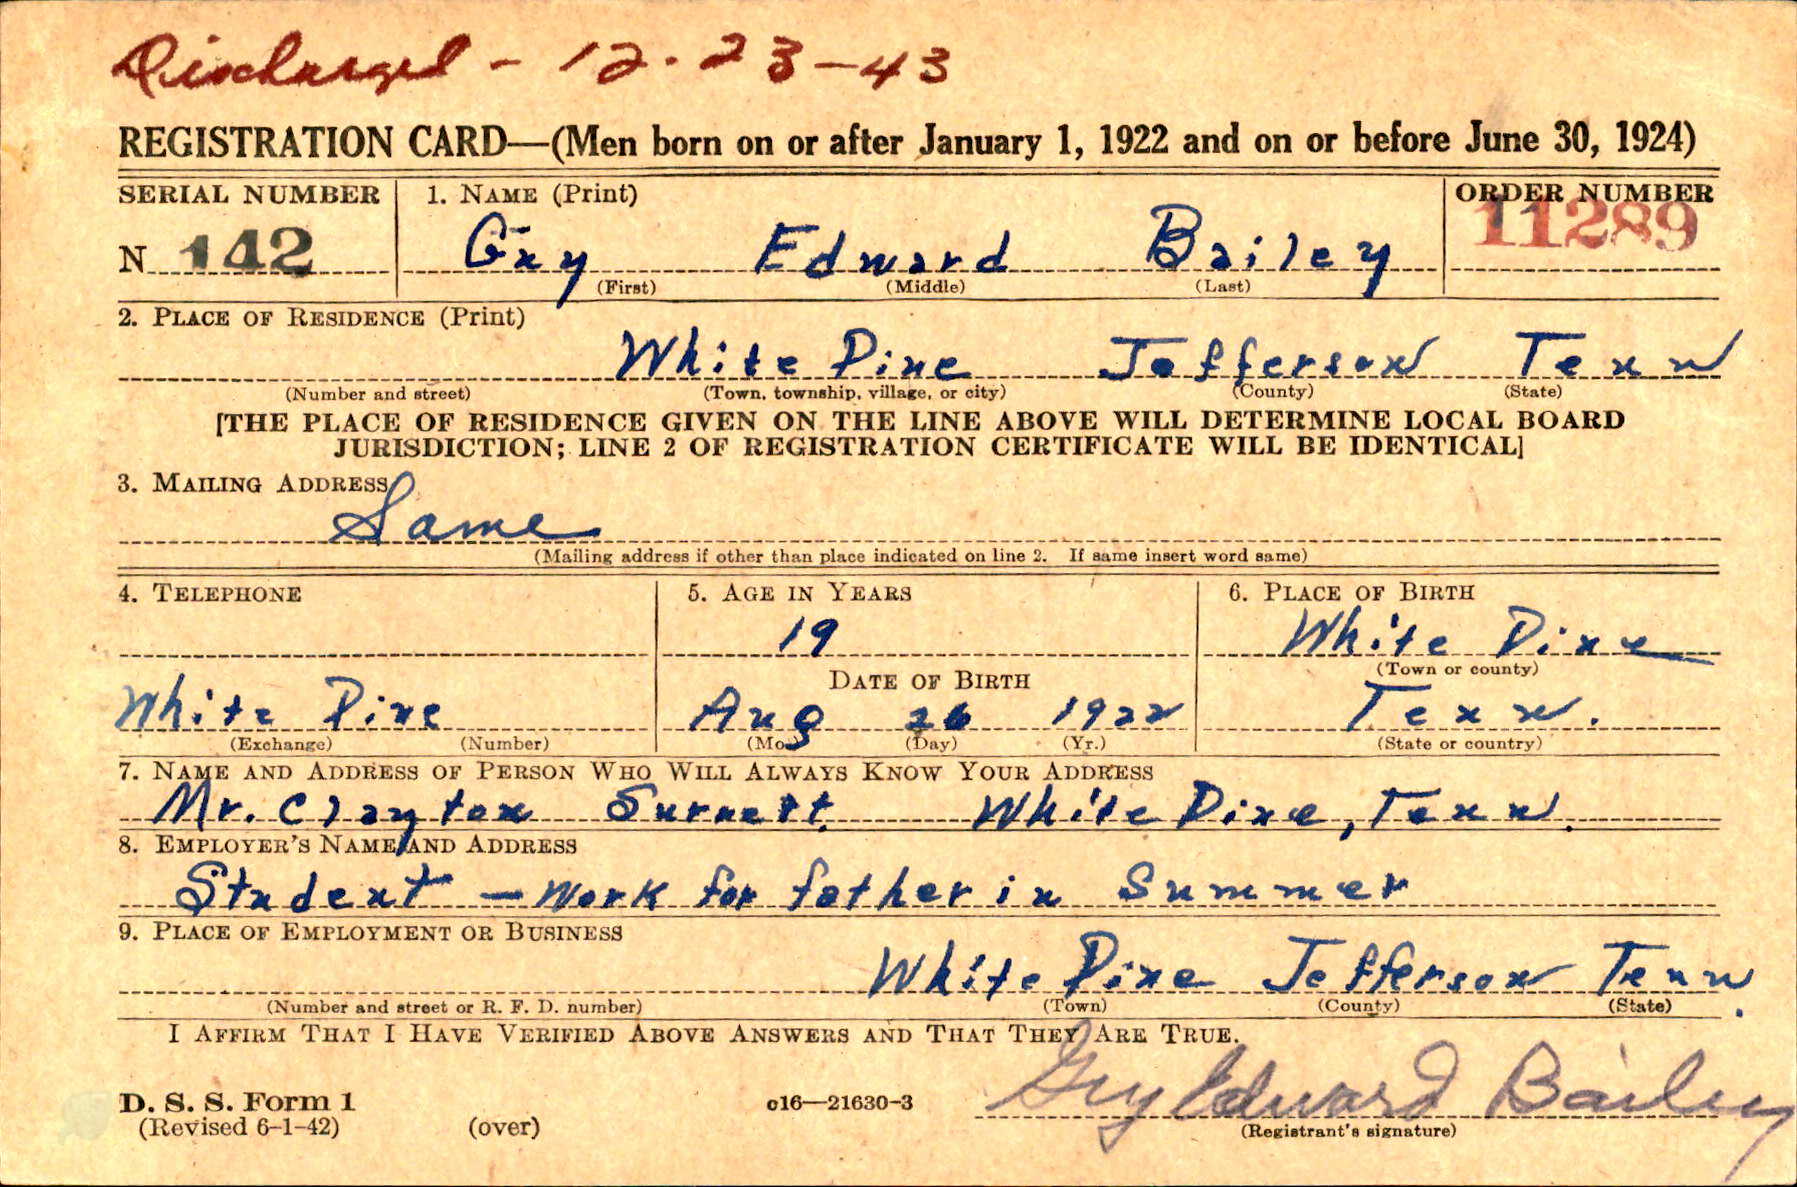 Discharged - 12-23-43
REGISTRATION CARD—(Men born on or after January 1, 1922 and on or before June 30, 1924)
SERIAL NUMBER 1. NAME (Print) ORDER NUMBER
N 142 Guy Edward Bailey 11289
(First) (Middle) (Last)
2. PLACE OF RESIDENCE (Print)
White Pine Jefferson Tenn
(Number and street) (Town, township, village, or city) (County) (State)
[THE PLACE OF RESIDENCE GIVEN ON THE LINE ABOVE WILL DETERMINE LOCAL BOARD
JURISDICTION; LINE 2 OF REGISTRATION CERTIFICATE WILL BE IDENTICAL]
3. MAILING ADDRESS
Same
(Mailing address if other than place indicated on line 2. If same insert word same)
4. TELEPHONE 5. AGE IN YEARS 6. PLACE OF BIRTH
19 White Pine
DATE OF BIRTH (Town or county)
White Pine Aug 26 1922 Tenn.
(Exchange) (Number) (Mo.) (Day) (Yr.) (State or country)
7. NAME AND ADDRESS OF PERSON WHO WILL ALWAYS KNOW YOUR ADDRESS
Mr. Clayton Surrett. White Pine, Tenn.
8. EMPLOYER'S NAME AND ADDRESS
Student - Work for father in Summer
9. PLACE OF EMPLOYMENT OR BUSINESS
White Pine Jefferson Tenn.
(Number and street or R. F. D. number) (Town) (County) (State)
I AFFIRM THAT I HAVE VERIFIED ABOVE ANSWERS AND THAT THEY ARE TRUE.
Guy Edward Bailey
D. S. S. Form 1 c16—21630-3
(Revised 6-1-42) (over) (Registrant's signature)